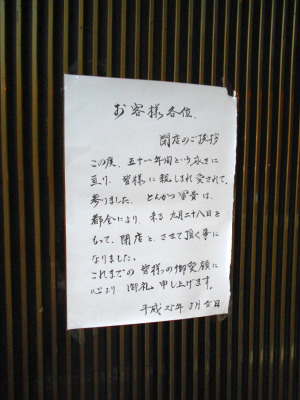 お客様各位
閉店のご挨拶
この度、五十一年間という永きに
亘り、皆様に親しまれ愛されて、
参りました、とんかつ冨貴は、
都合により、来る九月二十八日を
もって、閉店とさせて頂く事に
なりました。
これまでの皆様の御愛顧に
心より、御礼申し上げます。
平成25年 月 日